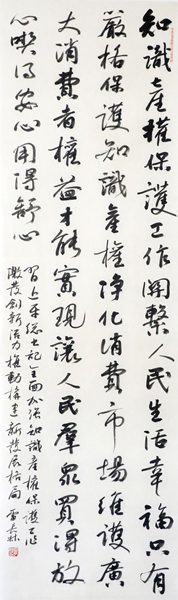 知識產權保護工作關繫人民生活幸福只有
嚴格保護知識產權净化消費市場維護廣
大消費者權益才能實現讓人民羣眾買得放
心喫得安心用得舒心
習近平總書記全面加強知識產權保護工作
激發創新活力推動構建新發展格局